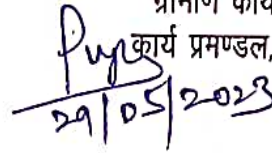 ग्रामीण कार्य
कार्य प्रमण्डल,
29/05/2023